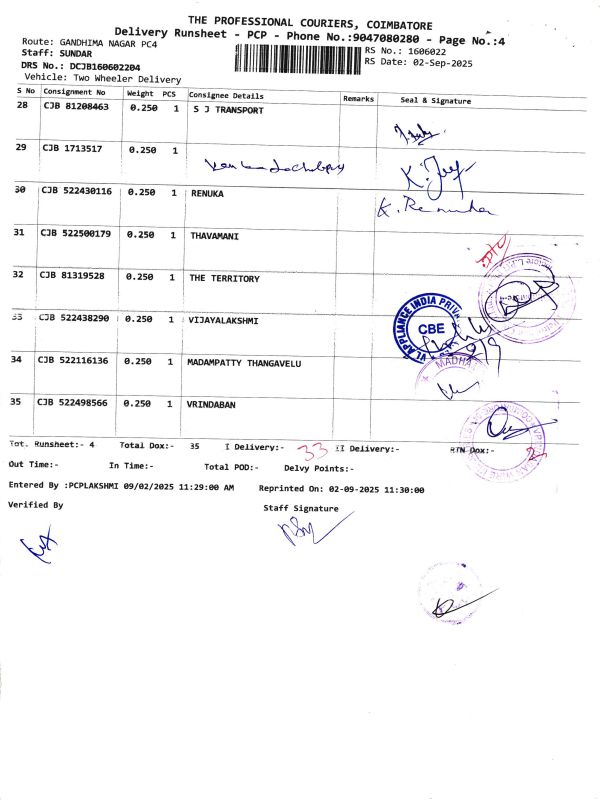 THE PROFESSIONAL COURIERS, COIMBATORE
Delivery Runsheet - PCP - Phone No.:9047080280 - Page No.:4
Route: GANDHIMA NAGAR PC4
RS No.: 1606022
Staff: SUNDAR
RS Date: 02-Sep-2025
DRS No.: DCJB160602204
Vehicle: Two Wheeler Delivery
S No Consignment No Weight PCS Consignee Details Remarks Seal & Signature
28 CJB 81208463 0.250 1 S J TRANSPORT
29 CJB 1713517 0.250 1
30 CJB 522430116 0.250 1 RENUKA K. Renuka
31 CJB 522500179 0.250 1 THAVAMANI
32 CJB 81319528 0.250 1 THE TERRITORY
33 CJB 522438290 0.250 1 VIJAYALAKSHMI
VL APPLIANCE INDIA PRIVA
CBE
34 CJB 522116136 0.250 1 MADAMPATTY THANGAVELU
MADHA
35 CJB 522498566 0.250 1 VRINDABAN
Tot. Runsheet:- 4 Total Dox:- 35 I Delivery:- 33 II Delivery:- RTN Dox:- 2
Out Time:- In Time:- Total POD:- Delvy Points:-
Entered By :PCPLAKSHMI 09/02/2025 11:29:00 AM Reprinted On: 02-09-2025 11:30:00
Verified By Staff Signature